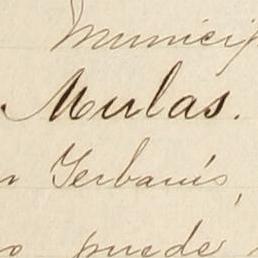 Municip
Mulas.
n Gerbasís,
o puede